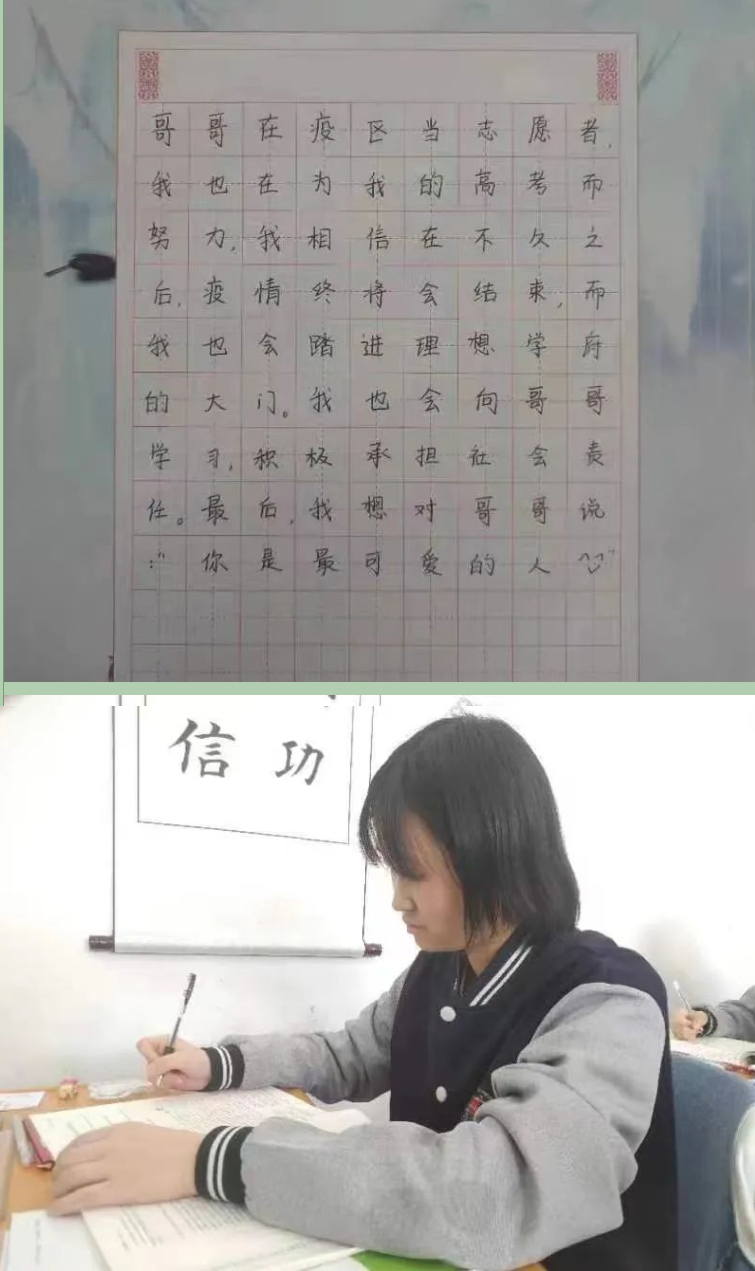 哥哥在疫区当志愿者,
我也在为我的高考而
努力,我相信在不久之
后,疫情终将会结束,而
我也会踏进理想学府
的大门。我也会向哥哥
学习,积极承担社会责
任。最后,我想对哥哥说
:“你是最可爱的人^_^”
信 功